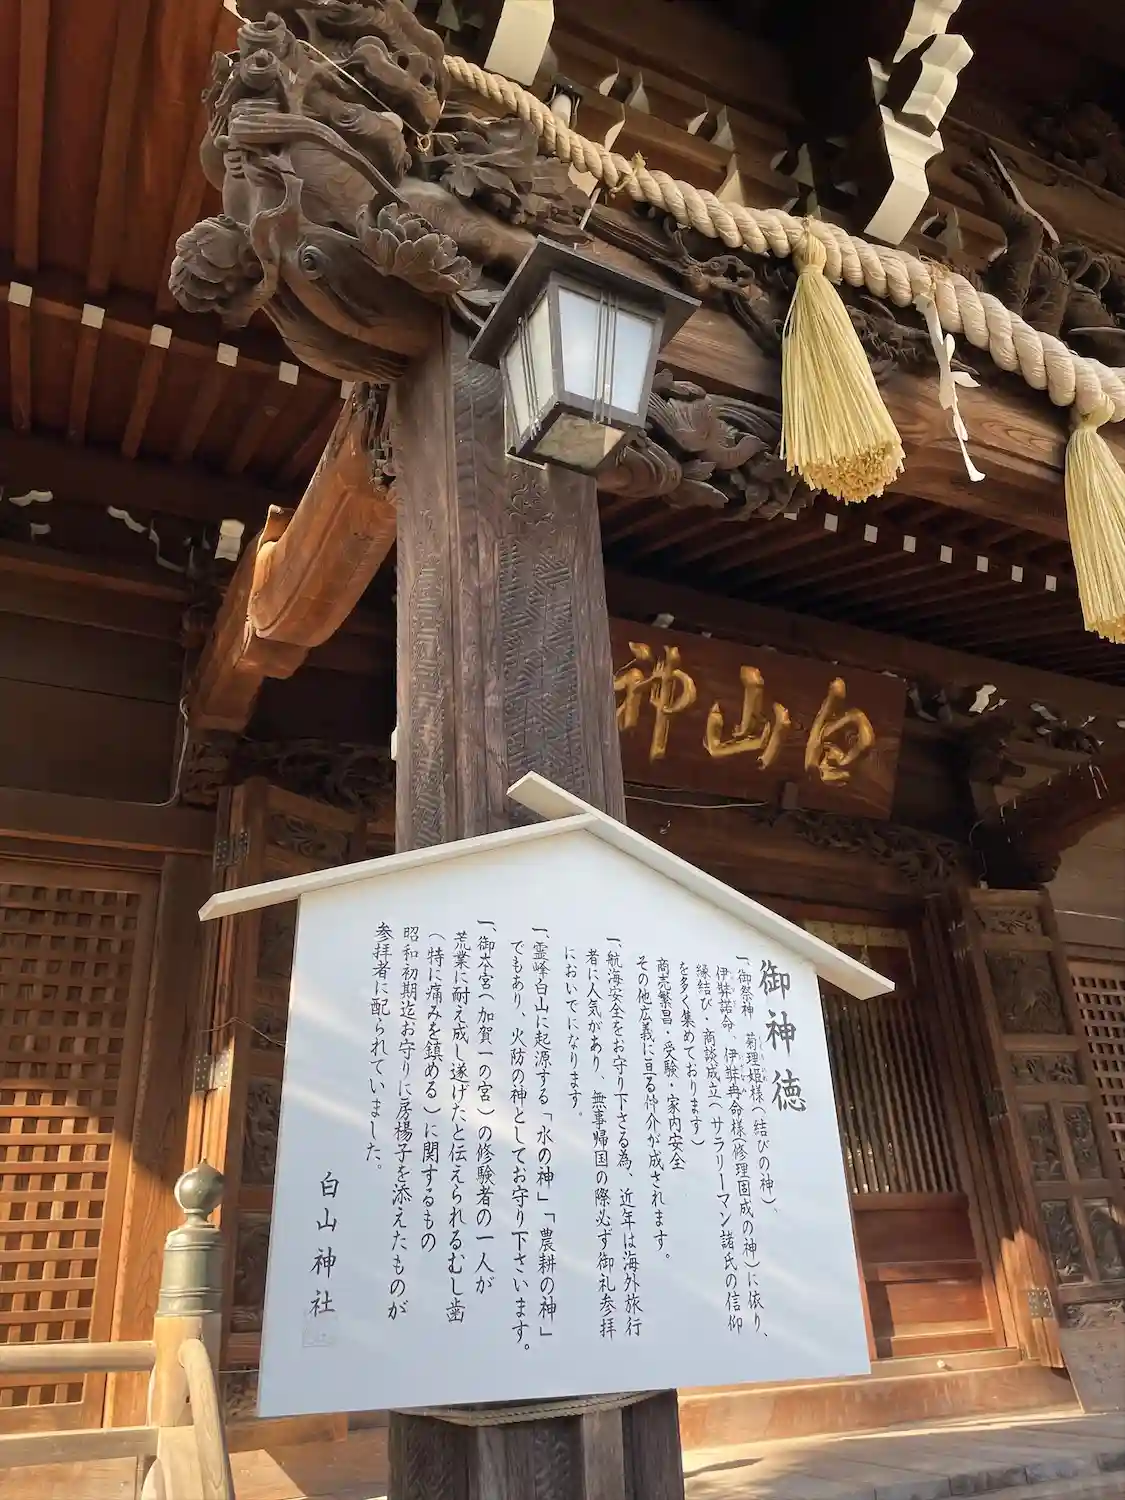 白山神
御神徳
一、御祭神 菊理姫様(結びの神)、
伊弉諾命、伊弉冉命様(修理固成の神)に依り、
縁結び・商談成立(サラリーマン諸氏の信仰
を多く集めております)
商売繁昌・受験・家内安全
その他広義に亘る仲介が成されます。
一、航海安全をお守り下さる為、近年は海外旅行
者に人気があり、無事帰国の際必ず御礼参拝
においでになります。
一、霊峰白山に起源する「水の神」「農耕の神」
でもあり、火防の神としてお守り下さいます。
一、御本宮(加賀一の宮)の修験者の一人が
荒業に耐え成し遂げたと伝えられるむし歯
(特に痛みを鎮める)に関するもの
昭和初期迄お守りに房楊子を添えたものが
参拝者に配られていました。
白山神社